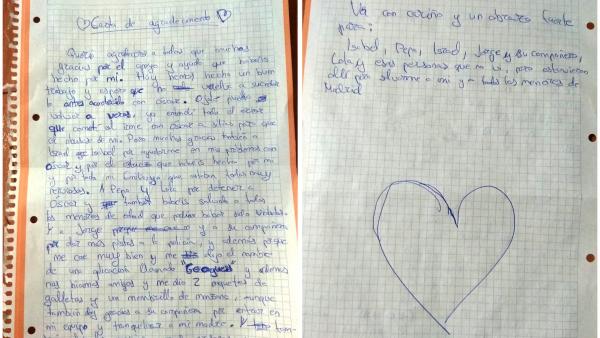 ♡Carta de agradecimiento♡
Quiero agradeceros a todos que muchas
gracias por el apoyo y ayuda que habéis
hecho por mi. Hoy hemos hecho un buen
trabajo y espero que no vuelva a suceder
lo antes acontecido con oscar. Ojalá pueda
volveros a veros, ya entendí todo el error
que cometí al irme con oscar a sitios para que
se de mi. Pero muchas gracias también a
Israel e Isabel por ayudarme en mis problemas con
Oscar y por el que habéis hecho por mi
y por toda mi que estaban todos muy
nerviosos. A Pepa y Lola por detener a
Oscar y también habéis salvado a todos
los menores de edad que podían haber sido violados.
Y a Jorge y a su compañera
por dar más pistas a la policía, y además porque
me cae muy bien y me dijo el nombre
de una aplicación llamada "Geogues" y además
nos hicimos amigos y me dio 2 paquetes de
galletas y un membrillo de manzana, aunque
también doy gracias a su compañera por entrar en
mi equipo y tranquilizar a mi madre. Y
Va con cariño y un abrazo fuerte
para:
Isabel, Pepa, Israel, Jorge y su compañera,
Lola y esas personas que no vi, pero estuvieron
allí por salvarme a mi y a todos los menores de
Madrid